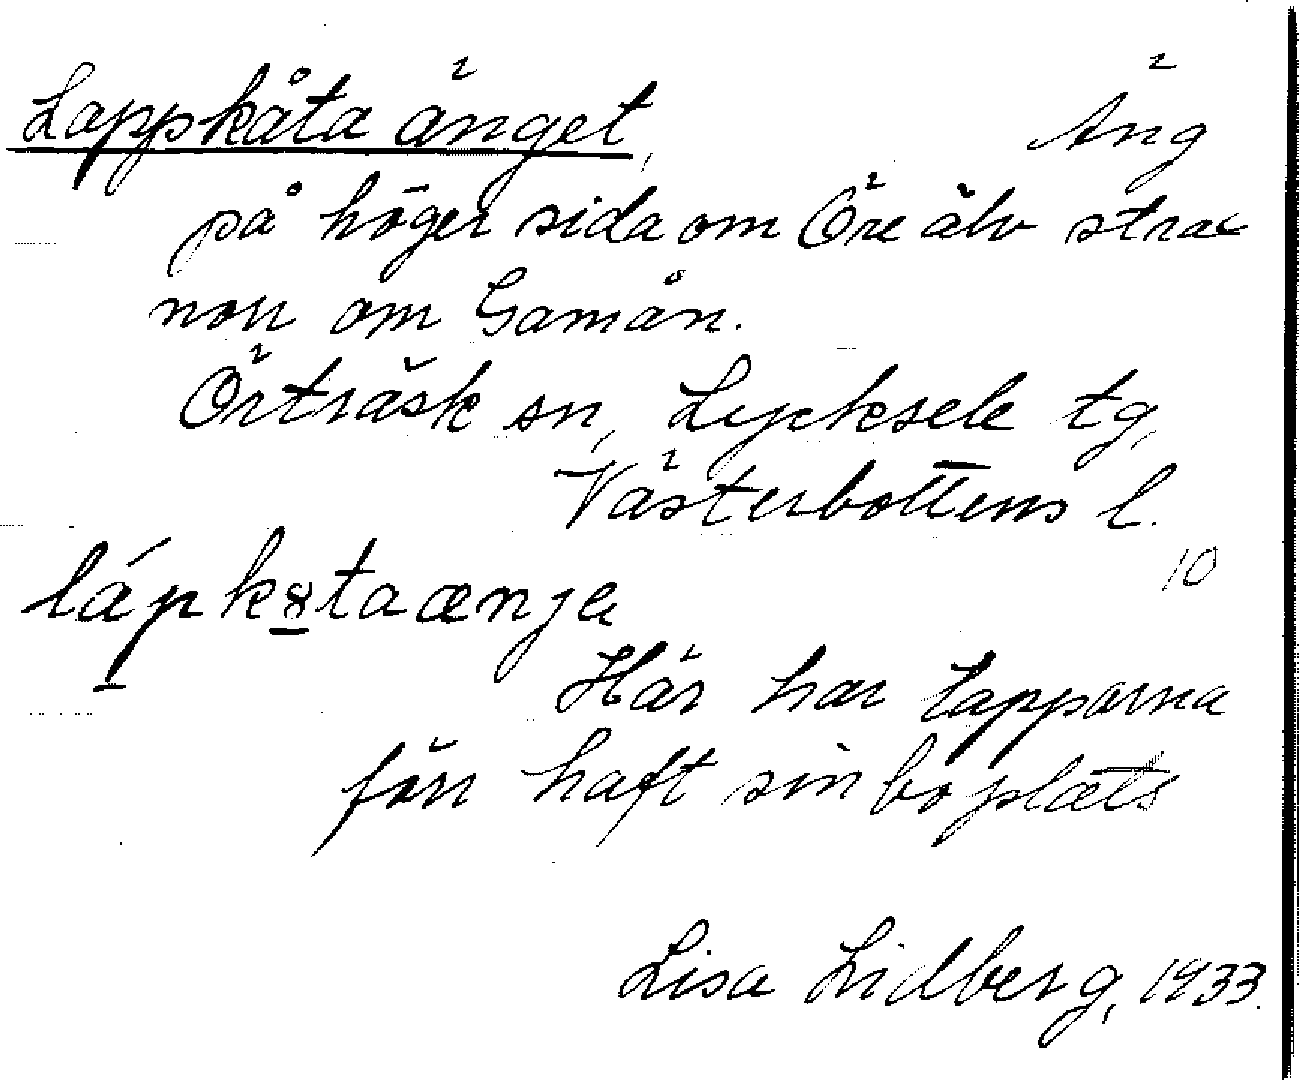 Lappkåta änget, Äng
på höger sida om Öre älv strax
norr om Gamån.
Örträsk sn, Lycksele tg,
Västerbottens l.
10
lápk8taænja
Här har lapparna
förr haft sin boplats
Lisa Lidberg, 1933.